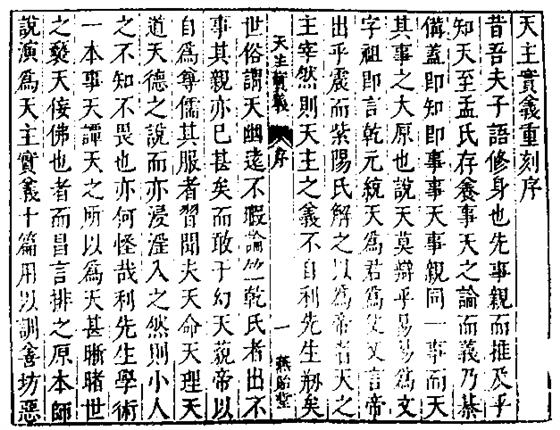 天主實義重刻序
昔吾夫子語修身也先事親而推及乎
知天至孟氏存養事天之論而義乃綦
備蓋即知即事事天事親同一事而天
其事之大原也說天莫辯乎易易為文
字祖即言乾元統天為君為父又言帝
出乎震而紫陽氏解之以為帝者天之
主宰然則天主之義不自利先生剏矣
天主實義
序
一
燕貽堂
世俗謂天幽遠不暇論竺乾氏者出不
事其親亦已甚矣而敢于幻天藐帝以
自為尊儒其服者習聞夫天命天理天
道天德之說而亦浸淫入之然則小人
之不知不畏也亦何怪哉利先生學術
一本事天譚天之所以為天甚晣睹世
之褻天佞佛也者而昌言排之原本師
說演為天主實義十篇用以訓善坊惡